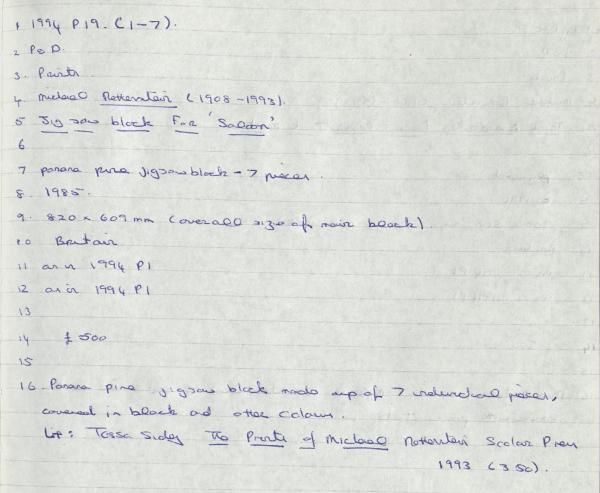 1 1994 P19. (1-7).
2 P & D.
3. Prints
4. Michael Rothenstein (1908-1993).
5 Jigsaw block For 'Saloon'
6
7 parana pine jigsaw block - 7 pieces.
8. 1985.
9. 820 x 609 mm (overall size of main block).
10 Britain
11 as in 1994 P1
12 as in 1994 P1
13
14 £500
15
16. Parana pine jigsaw block made up of 7 individual pieces,
covered in black ad other colours.
Lit: Tessa Sidey The Prints of Michael Rothenstein Scolar Press
1993 (350).